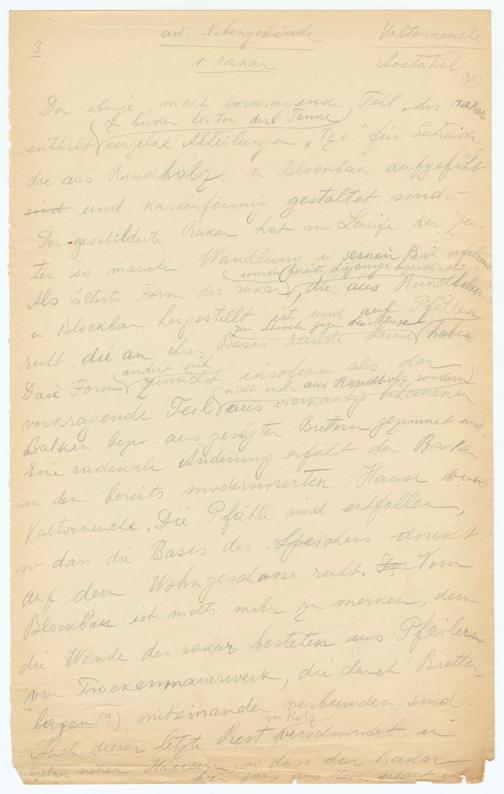 3
ad. Nebengebäude
Valtornenche
1. rakar
Aostatal
Der übrige, nicht vorkragende Teil, des rakar
zu beiden Seiten der Tenne
enthält einzelne Abteilungen für Getreide,
die aus Rundholz in Blockbau aufgeführt
sind und kastenförmig gestaltet sind. –
Der geschilderte Rakar hat im Laufe der Zei-
ten so manche Wandlung in seinem Bau erfahren.
wurde bereits diejenige bezeichnet
Als älteste Form des rakar, die aus Rundhölzern
in Blockbau hergestellt ist und auf Pfählen
zum Schutz gegen die Mäuse
ruht, die an ihrer Basis runde Steine haben
ändert sich
Diese Form zunächst insofern als der
nicht mehr aus Rundholz, sondern
vorkragende Teil aus vierkantig behauenen
Balken bezw. aus gesägten Brettern gezimmert wird.
Eine radikale Änderung erfährt der Rakar
in den bereits modernisierten Hause von
Valtornenche. Die Pfähle sind entfallen,
so dass die Basis des Speichers direkt
auf dem Wohngeschosse ruht. Vom
Blockbau ist nichts mehr zu merken, denn
die Wände des rakar bestehen aus Pfeilern
von Trockenmauerwerk, die durch Bretter-
lagen (?) miteinander verbunden sind.
von Holz
Auch dieser letzte Rest verschwindet in
einzelnen Häusern, so dass der Rakar
hier ganz aus Stein erbaut ist